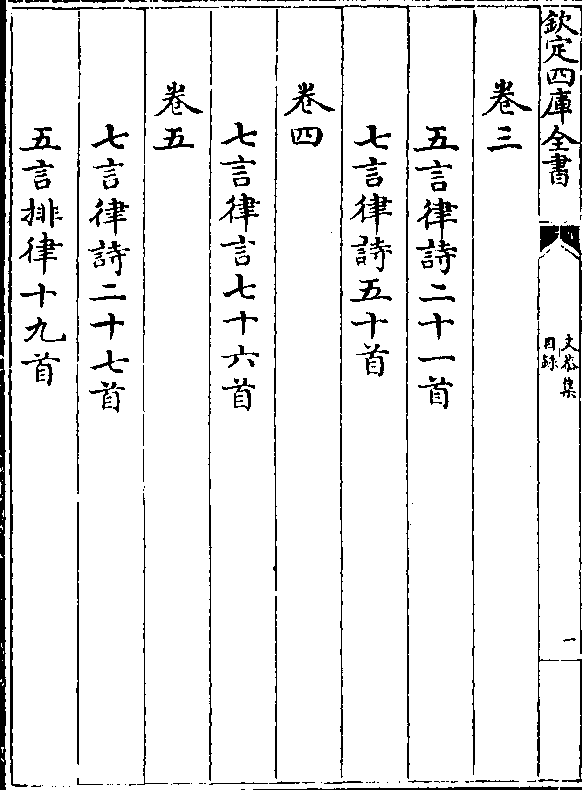 欽定四庫全書
文恭集
目録
一
卷三
五言律詩二十一首
七言律詩五十首
卷四
七言律言七十六首
卷五
七言律詩二十七首
五言排律十九首